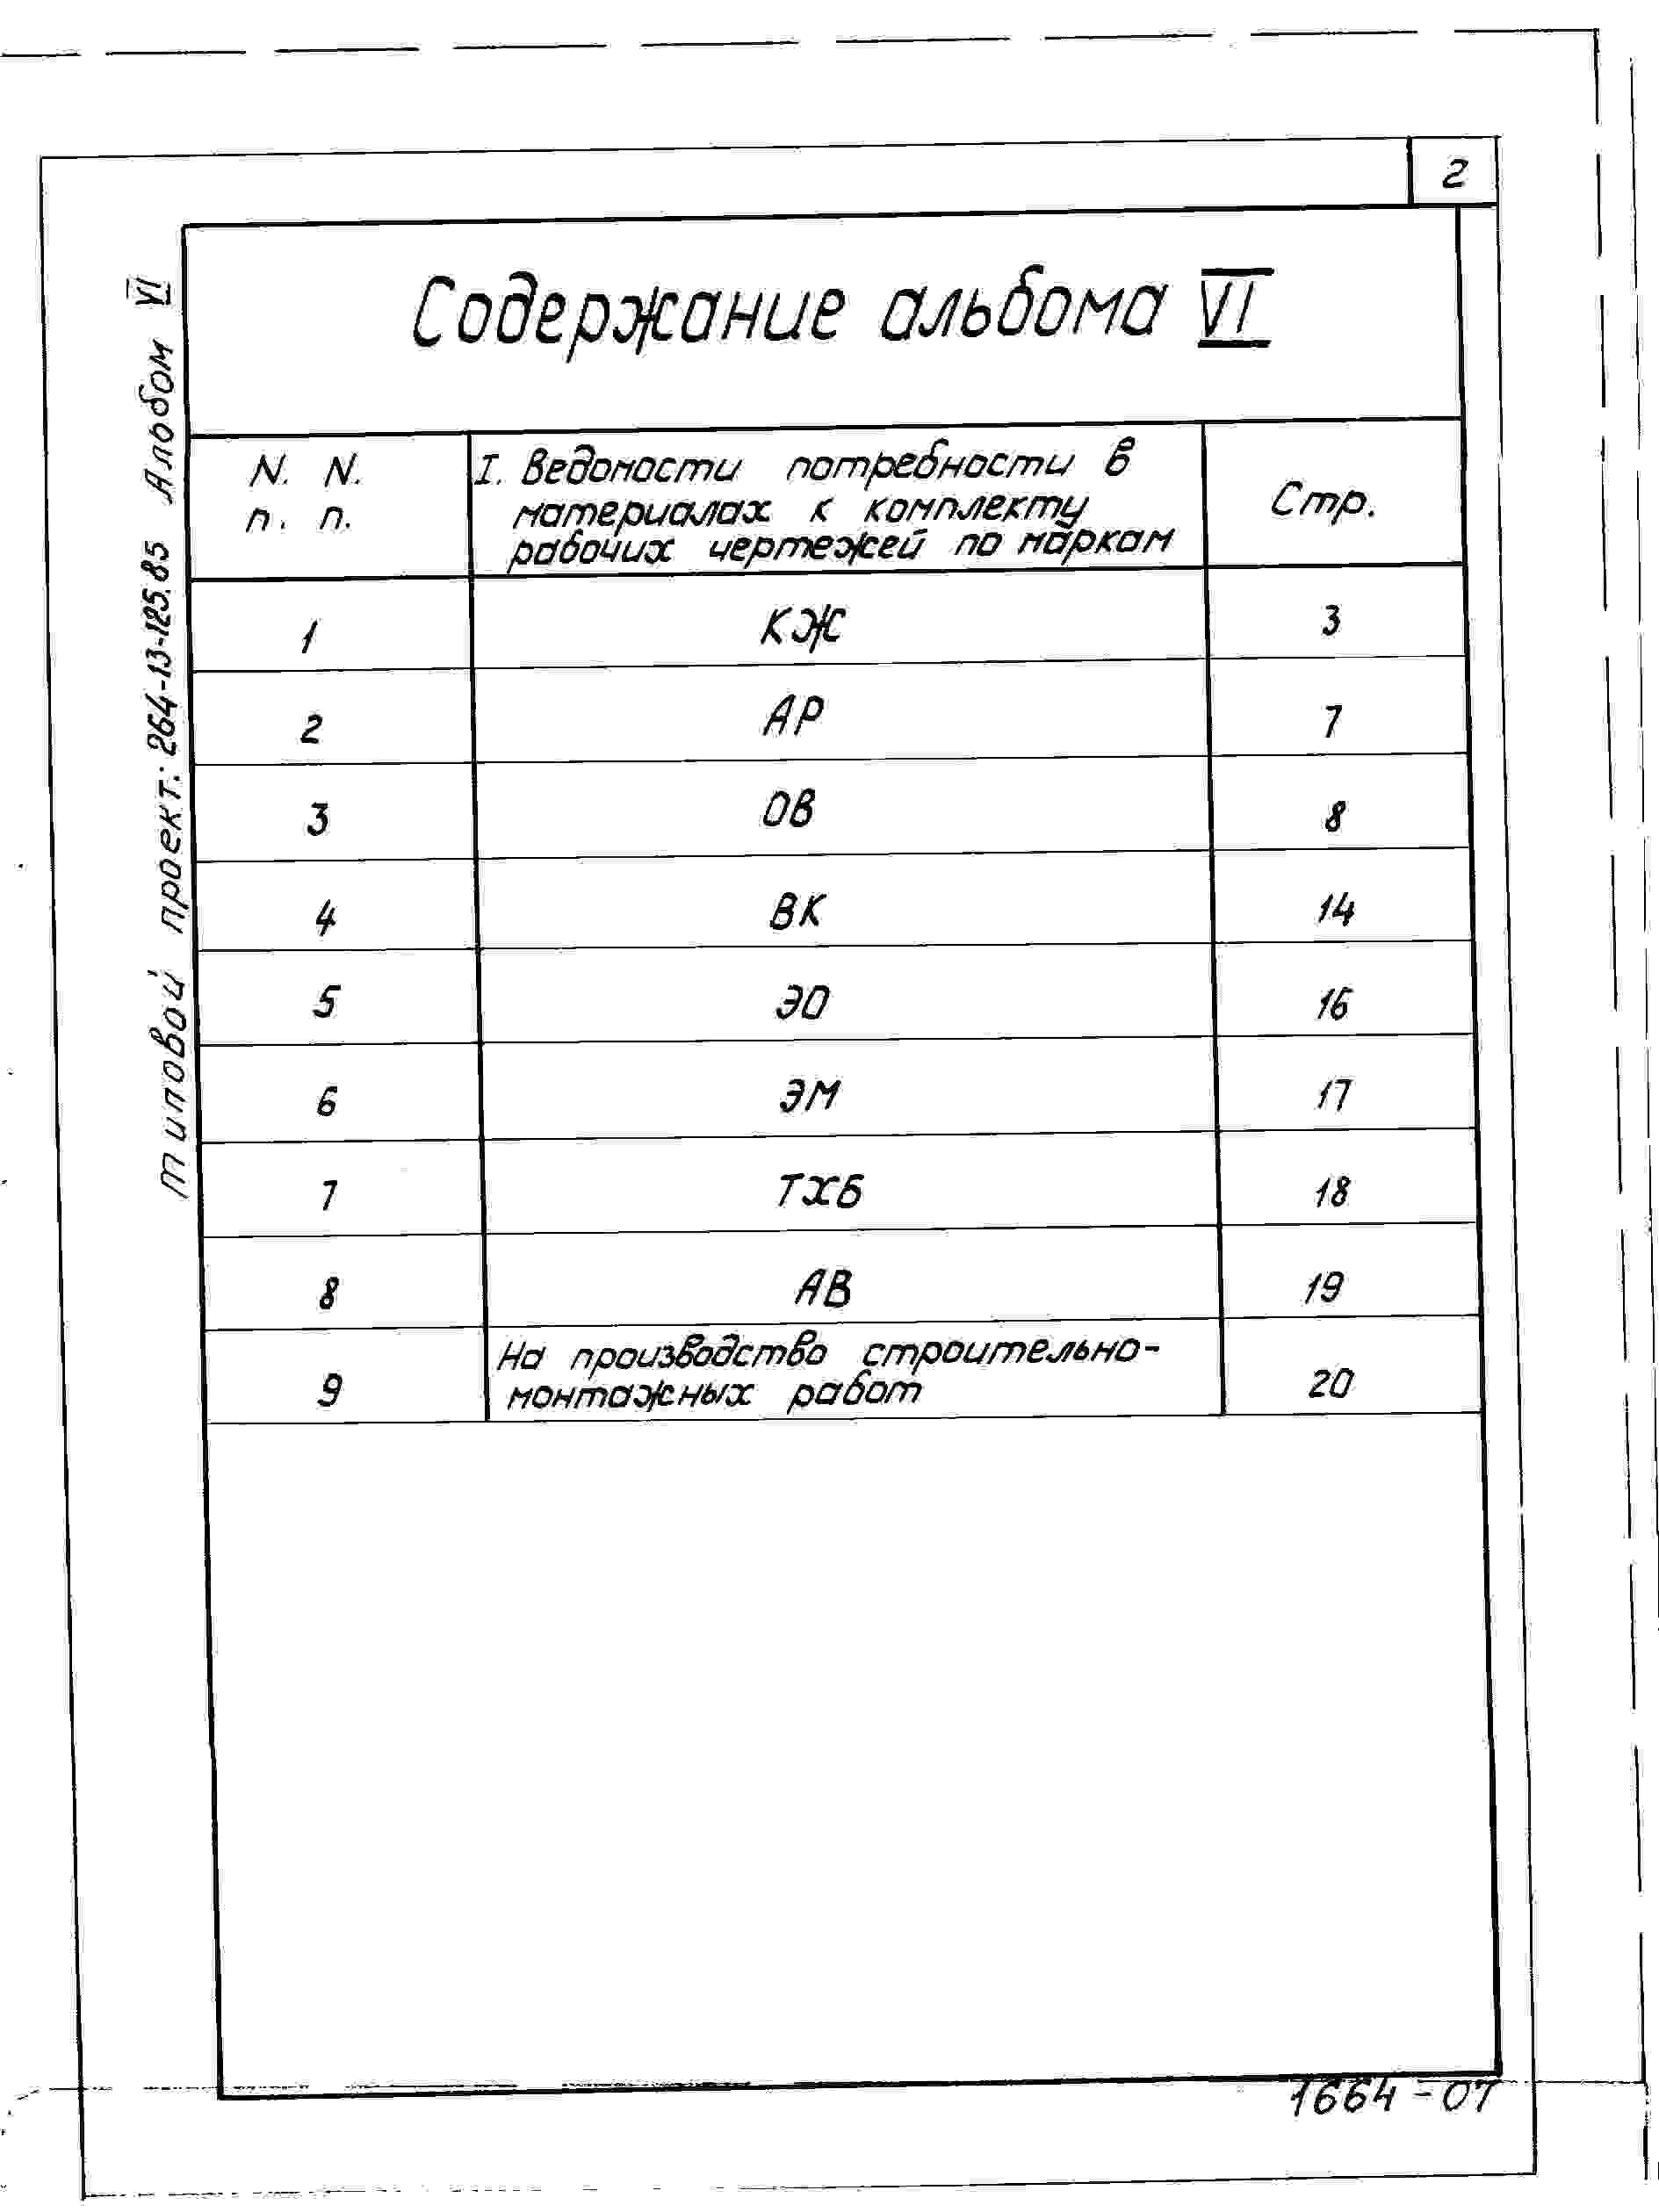 2
Содержание альбома VI
Типовой проект: 264-13-125.85 Альбом VI
N. N. п. п.
I. Ведомости потребности в
материалах к комплекту
рабочих чертежей по маркам
Стр.
1 КЖ 3
2 АР 7
3 ОВ 8
4 ВК 14
5 ЭО 16
6 ЭМ 17
7 ТХБ 18
8 АВ 19
9 На производство строительно-
монтажных работ 20
1664-07